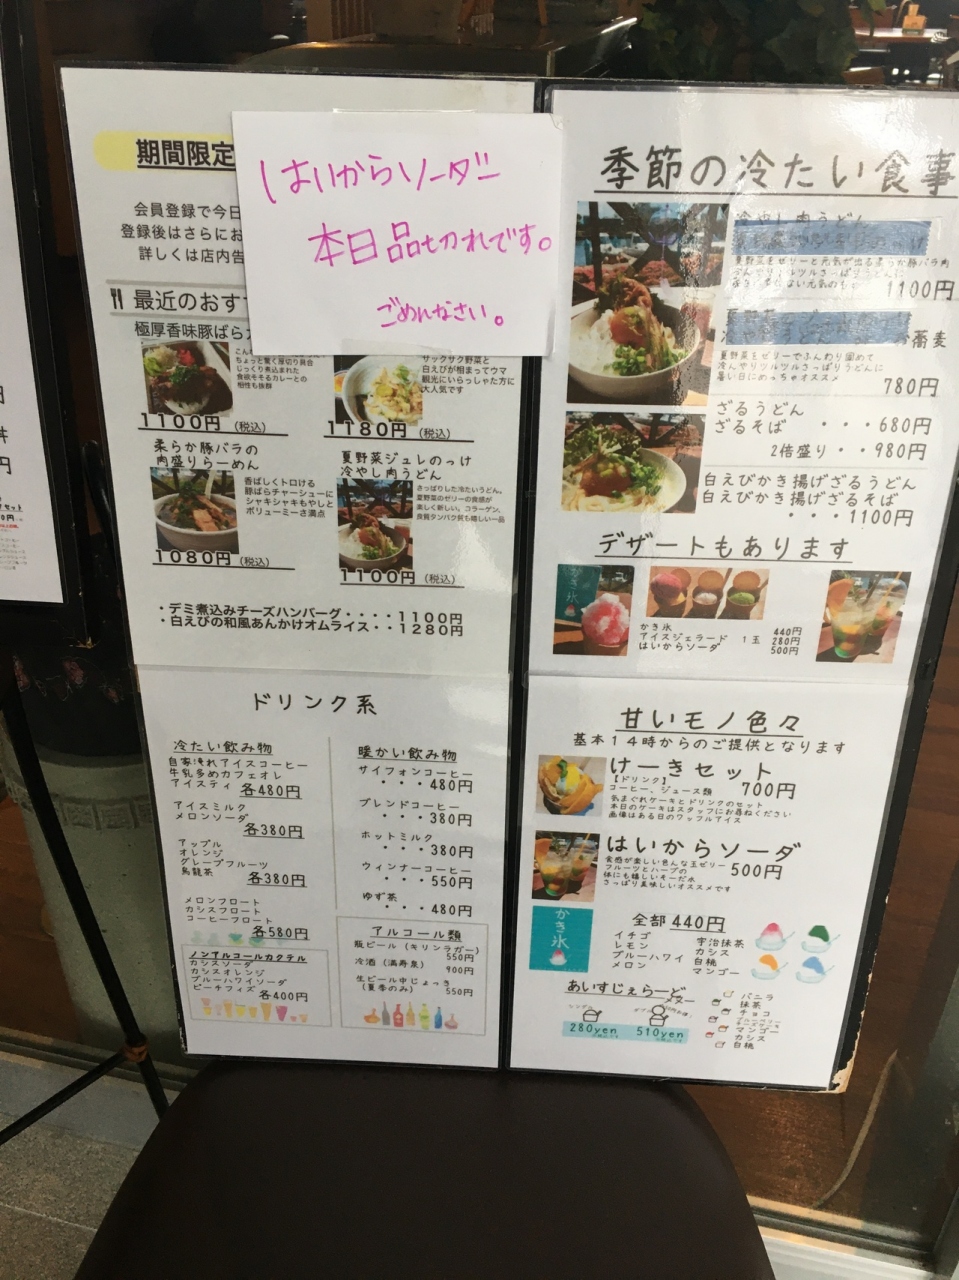 期間限定
会員登録で今日
登録後はさらにお
詳しくは店内告
はいからソーダー
本日品切れです。
ごめんなさい。
最近のおす
極厚香味豚ばら
ちょっと驚く厚切り具合
じっくり煮込まれた
食欲そそるカレーとの
相性も抜群
1100円（税込）
サックサク野菜と
白えびが相まってウマ
観光にいらっしゃた方に
大人気です
1180円（税込）
柔らか豚バラの
肉盛りらーめん
香ばしくトロける
豚ばらチャーシューに
シャキシャキもやしと
ボリューミーさ満点
1080円（税込）
夏野菜ジュレのっけ
冷やし肉うどん
さっぱりした冷たいうどん。
夏野菜のゼリーの食感が
楽しく新しい。コラーゲン、
良質タンパク質も嬉しい一品
1100円（税込）
・デミ煮込みチーズハンバーグ・・・・1100円
・白えびの和風あんかけオムライス・・1280円
季節の冷たい食事
冷やし肉うどん
1100円
蕎麦
夏野菜をゼリーでふんわり固めて
冷んやりツルツルさっぱりうどんに
暑い日にめっちゃオススメ
780円
ざるうどん
ざるそば ・・・680円
2倍盛り・・980円
白えびかき揚げざるうどん
白えびかき揚げざるそば
・・・1100円
デザートもあります
かき氷
かき氷 440円
アイスジェラード 1玉 280円
はいからソーダ 500円
ドリンク系
冷たい飲み物
自家淹れアイスコーヒー
牛乳多めカフェオレ
アイスティ 各480円
アイスミルク
メロンソーダ
各380円
アップル
オレンジ
グレープフルーツ
烏龍茶 各380円
メロンフロート
カシスフロート
コーヒーフロート
各580円
ノンアルコールカクテル
カシスソーダ
カシスオレンジ
ブルーハワイソーダ
ピーチフィズ 各400円
暖かい飲み物
サイフォンコーヒー
・・・480円
ブレンドコーヒー
・・・380円
ホットミルク
・・・380円
ウィンナーコーヒー
・・・550円
ゆず茶
・・・480円
アルコール類
瓶ビール（キリンラガー）
550円
冷酒（満寿泉）
900円
生ビール中じょっき
（夏季のみ） 550円
甘いモノ色々
基本14時からのご提供となります
けーきセット
【ドリンク】
コーヒー、ジュース類 700円
気まぐれケーキとドリンクのセット
本日のケーキはスタッフにお尋ねください
画像はある日のワッフルアイス
はいからソーダ
食感が楽しい色んな玉ゼリー
フルーツとハーブの
体にも嬉しいそーだ水
さっぱり美味しいオススメです
500円
かき氷
全部440円
イチゴ
レモン
ブルーハワイ
メロン
宇治抹茶
カシス
白桃
マンゴー
あいすじぇらーど
280yen
510yen
バニラ
抹茶
チョコ
マンゴー
カシス
白桃